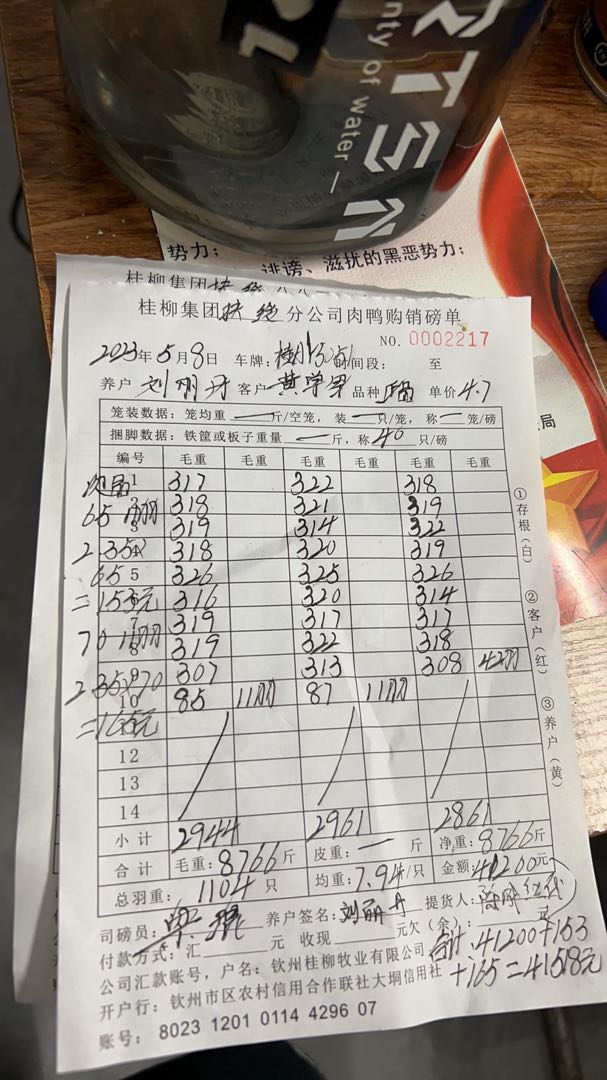 RTSN
nty of water—
势力；
诽谤、滋扰的黑恶势力；
桂柳集团扶绥
桂柳集团扶绥分公司肉鸭购销磅单
NO. 0002217
2023年5月8日 车牌： 时间段： 至
养户 刘丽丹 客户 黄学军 品种 单价4.7
笼装数据：笼均重 一 斤/空笼，装 一 只/笼，称 一 笼/磅
捆脚数据：铁筐或板子重量 一 斤，称 40 只/磅
编号 毛重 毛重 毛重 毛重 毛重 毛重
次品 1 317 322 318
65羽 318 321 319
3 319 314 322
2.35× 318 320 319
65 5 326 325 326
=153元 316 320 314
7 319 317 317
70羽 8 319 322 318
9 307 313 308 42羽
2.35×70 10 85 11羽 87 11羽
=165元
12
13
14
小计 2944 2961 2861
合计 毛重：8766斤 皮重：一斤 净重：8766斤
总羽重：1104只 均重：7.94/只 金额：41200元
司磅员： 养户签名：刘丽丹 提货人：
付款方式：汇 元 收现 元欠（余）：
合计：41200+153
+165=41518元
公司汇款账号，户名：钦州桂柳牧业有限公司
开户行：钦州市区农村信用合作联社大垌信用社
账号：8023 1201 0114 4296 07
①存根（白）
②客户（红）
③养户（黄）
局